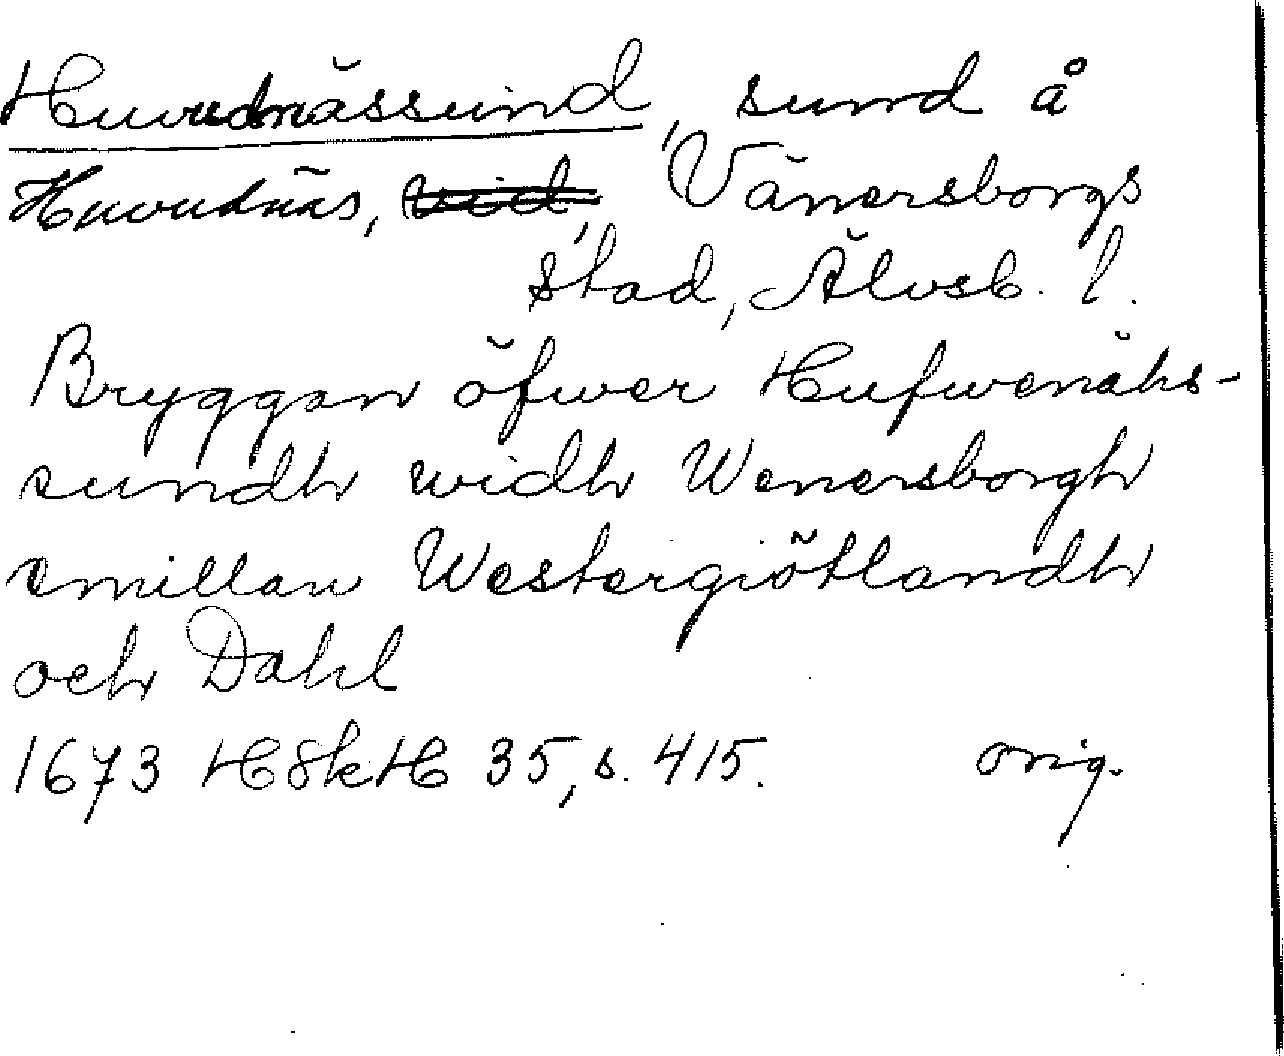 Huvudnässund, sund å
Huvudnäs, vid, Vänersborgs
stad, Älvsb. l.
Bryggan öfwer Hufwenähs-
sundh widh Wenersborgh
emillan Westergiötlandh
och Dahl
1673 HSkH 35, s. 415. orig.